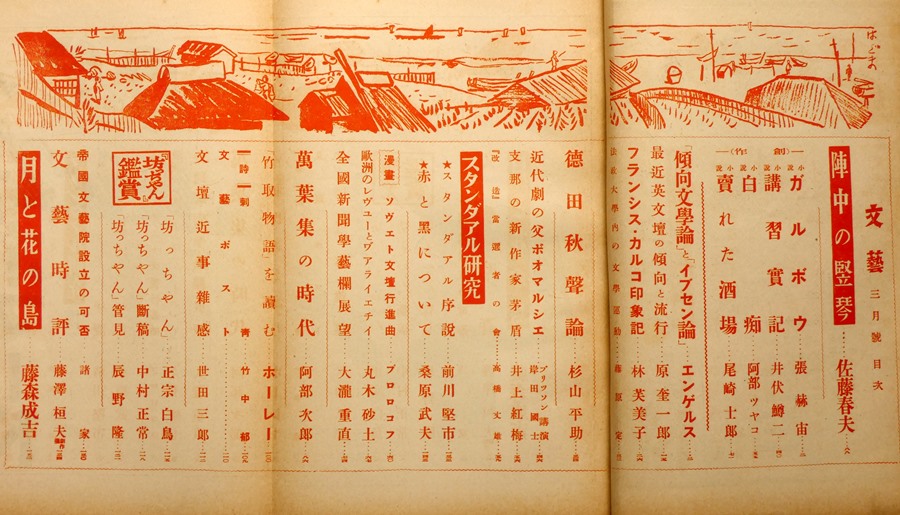 はせがま
文藝 三月號 目次
陣中の竪琴 佐藤春夫
―(創作)―
小説 ガルボウ 張赫宙
小説 講習實記 井伏鱒二
小説 白痴 阿部ツヤコ
小説 賣れた酒場 尾崎士郎
「傾向文學論」と「イプセン論」 エンゲルス
最近英文壇の傾向と流行 原奎一郎
フランシス・カルコ印象記 林芙美子
法政大學内の文學運動 藤原定
德田秋聲論 杉山平助
近代劇の父ボオマルシエ ブリヴソン講演 岸田國士
支那の新作家茅盾 井上紅梅
『改造』當選者の會 高橋丈雄
スタンダアル研究
★スタンダアル序説 前川堅市
★赤と黒について 桑原武夫
漫畫 ソヴエト文壇行進曲 プロロコフ
歐洲のレヴューとヴアライエチイ 丸木砂土
全國新聞學藝欄展望 大瀧重直
萬葉集の時代 阿部次郎
竹取物語を讀む ホーレー
―詩― 刺青 竹中郁
文藝ポスト
文壇近事雜感 世田三郎
坊つちやん鑑賞
「坊つちやん」 正宗白鳥
「坊つちやん」斷稿 中村正常
「坊つちやん」管見 辰野隆
帝國文藝院設立の可否 諸家
文藝時評 藤澤桓夫
月と花の島 藤森成吉